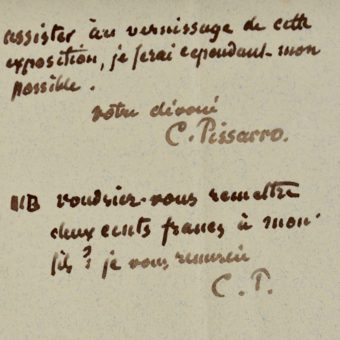 assister au vernissage de cette
exposition, je ferai cependant mon
possible.
votre dévoué
C. Pissarro.
NB voudriez-vous remettre
deux cents francs à mon
fils? je vous remercie
C. P.